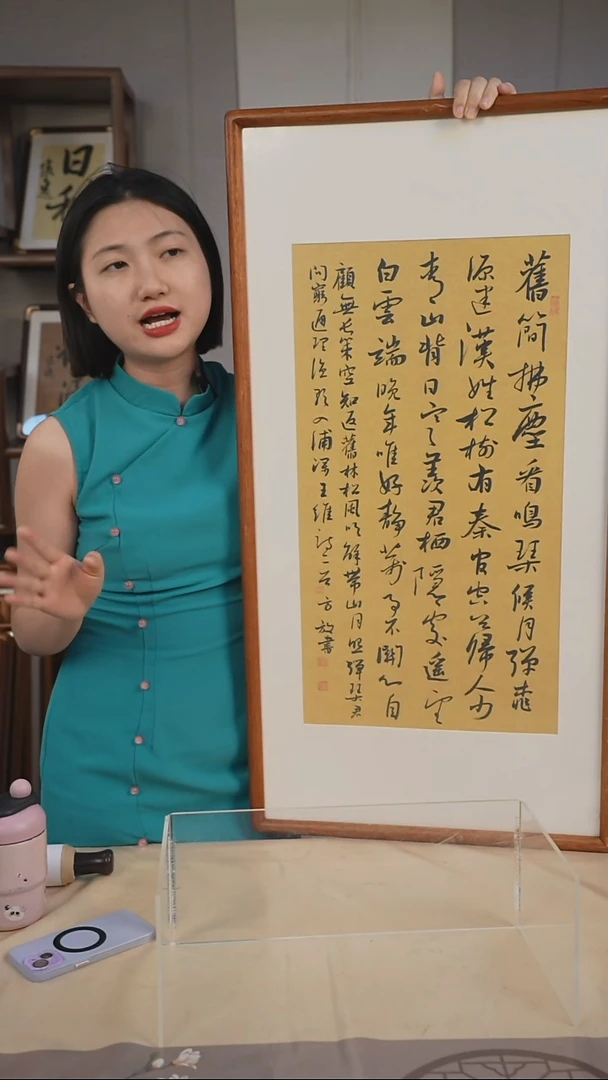 舊簡拂塵看鳴琴候月彈桃
源迷漢姓松樹有秦官空谷歸人少
青山背日寒羨君棲隱處遙望
白雲端晚年唯好靜萬事不關心自
顧無長策空知返舊林松風吹解帶山月照彈琴君
問窮通理漁歌入浦深王維詩二首方放書
日